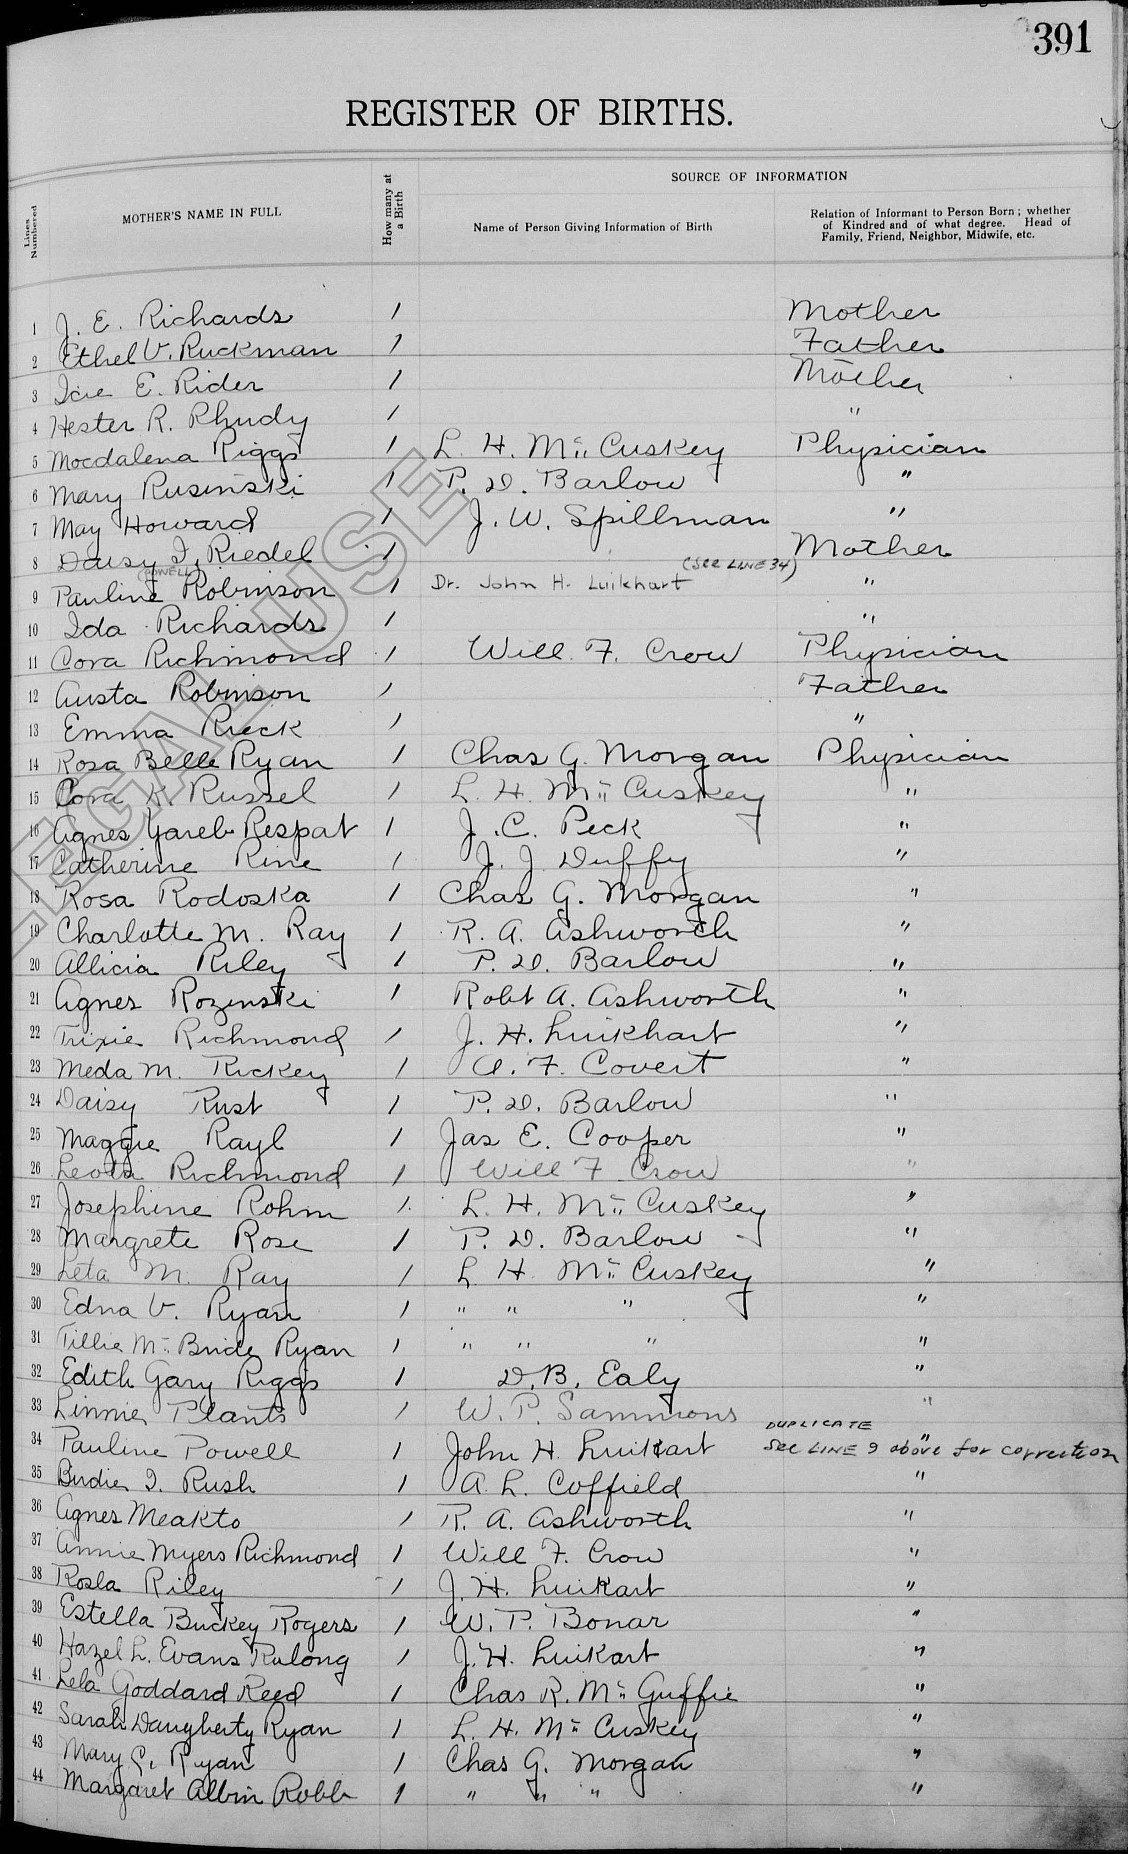 391
REGISTER OF BIRTHS.
Lines Numbered
MOTHER'S NAME IN FULL
How many at a Birth
SOURCE OF INFORMATION
Name of Person Giving Information of Birth
Relation of Informant to Person Born; whether of Kindred and of what degree. Head of Family, Friend, Neighbor, Midwife, etc.
1 J. E. Richards 1 Mother
2 Ethel V. Ruckman 1 Father
3 Icie E. Rider 1 Mother
4 Hester R. Rhudy 1 "
5 Mocdalena Riggs 1 L. H. Mc Cuskey Physician
6 Mary Rusinski 1 P. D. Barlow "
7 May Howard 1 J. W. Spillman "
8 Daisy I. Riedel 1 Mother
(POWELL) (See LINE 34)
9 Pauline Robinson 1 Dr. John H. Luikhart "
10 Ida Richards 1 "
11 Cora Richmond 1 Will F. Crow Physician
12 Austa Robinson 1 Father
13 Emma Rieck 1 "
14 Rosa Belle Ryan 1 Chas G. Morgan Physician
15 Cora K. Russel 1 L. H. Mc Cuskey "
16 Agnes Yareb Respat 1 J. C. Peck "
17 Catherine Rine 1 J. J. Duffy "
18 Rosa Rodoska 1 Chas G. Morgan "
19 Charlotte M. Ray 1 R. A. Ashworth "
20 Allicia Riley 1 P. D. Barlow "
21 Agnes Rozinski 1 Robt A. Ashworth "
22 Trixie Richmond 1 J. H. Luikhart "
23 Meda M. Rickey 1 A. F. Covert "
24 Daisy Rust 1 P. D. Barlow "
25 Maggie Rayl 1 Jas E. Cooper "
26 Leota Richmond 1 Will F Crow "
27 Josephine Rohm 1 L. H. Mc Cuskey "
28 Margrete Rose 1 P. D. Barlow "
29 Leta M. Ray 1 L. H. Mc Cuskey "
30 Edna V. Ryan 1 " " " "
31 Tillie Mc Bride Ryan 1 " " " "
32 Edith Gary Riggs 1 D. B. Ealy "
33 Linnie Plants 1 W. P. Sammons "
DUPLICATE
34 Pauline Powell 1 John H. Luikart " See LINE 9 above for correction
35 Birdie I. Rush 1 A. L. Coffield "
36 Agnes Meakto 1 R. A. Ashworth "
37 Annie Myers Richmond 1 Will F. Crow "
38 Rosla Riley 1 J. H. Luikart "
39 Estella Buckey Rogers 1 W. P. Bonar "
40 Hazel L. Evans Rulong 1 J. H. Luikart "
41 Lela Goddard Reed 1 Chas R. Mc Guffie "
42 Sarah Daugherty Ryan 1 L. H. Mc Cuskey "
43 Mary C. Ryan 1 Chas G. Morgan "
44 Margaret Albin Robb 1 " " " "
LEGAL USE